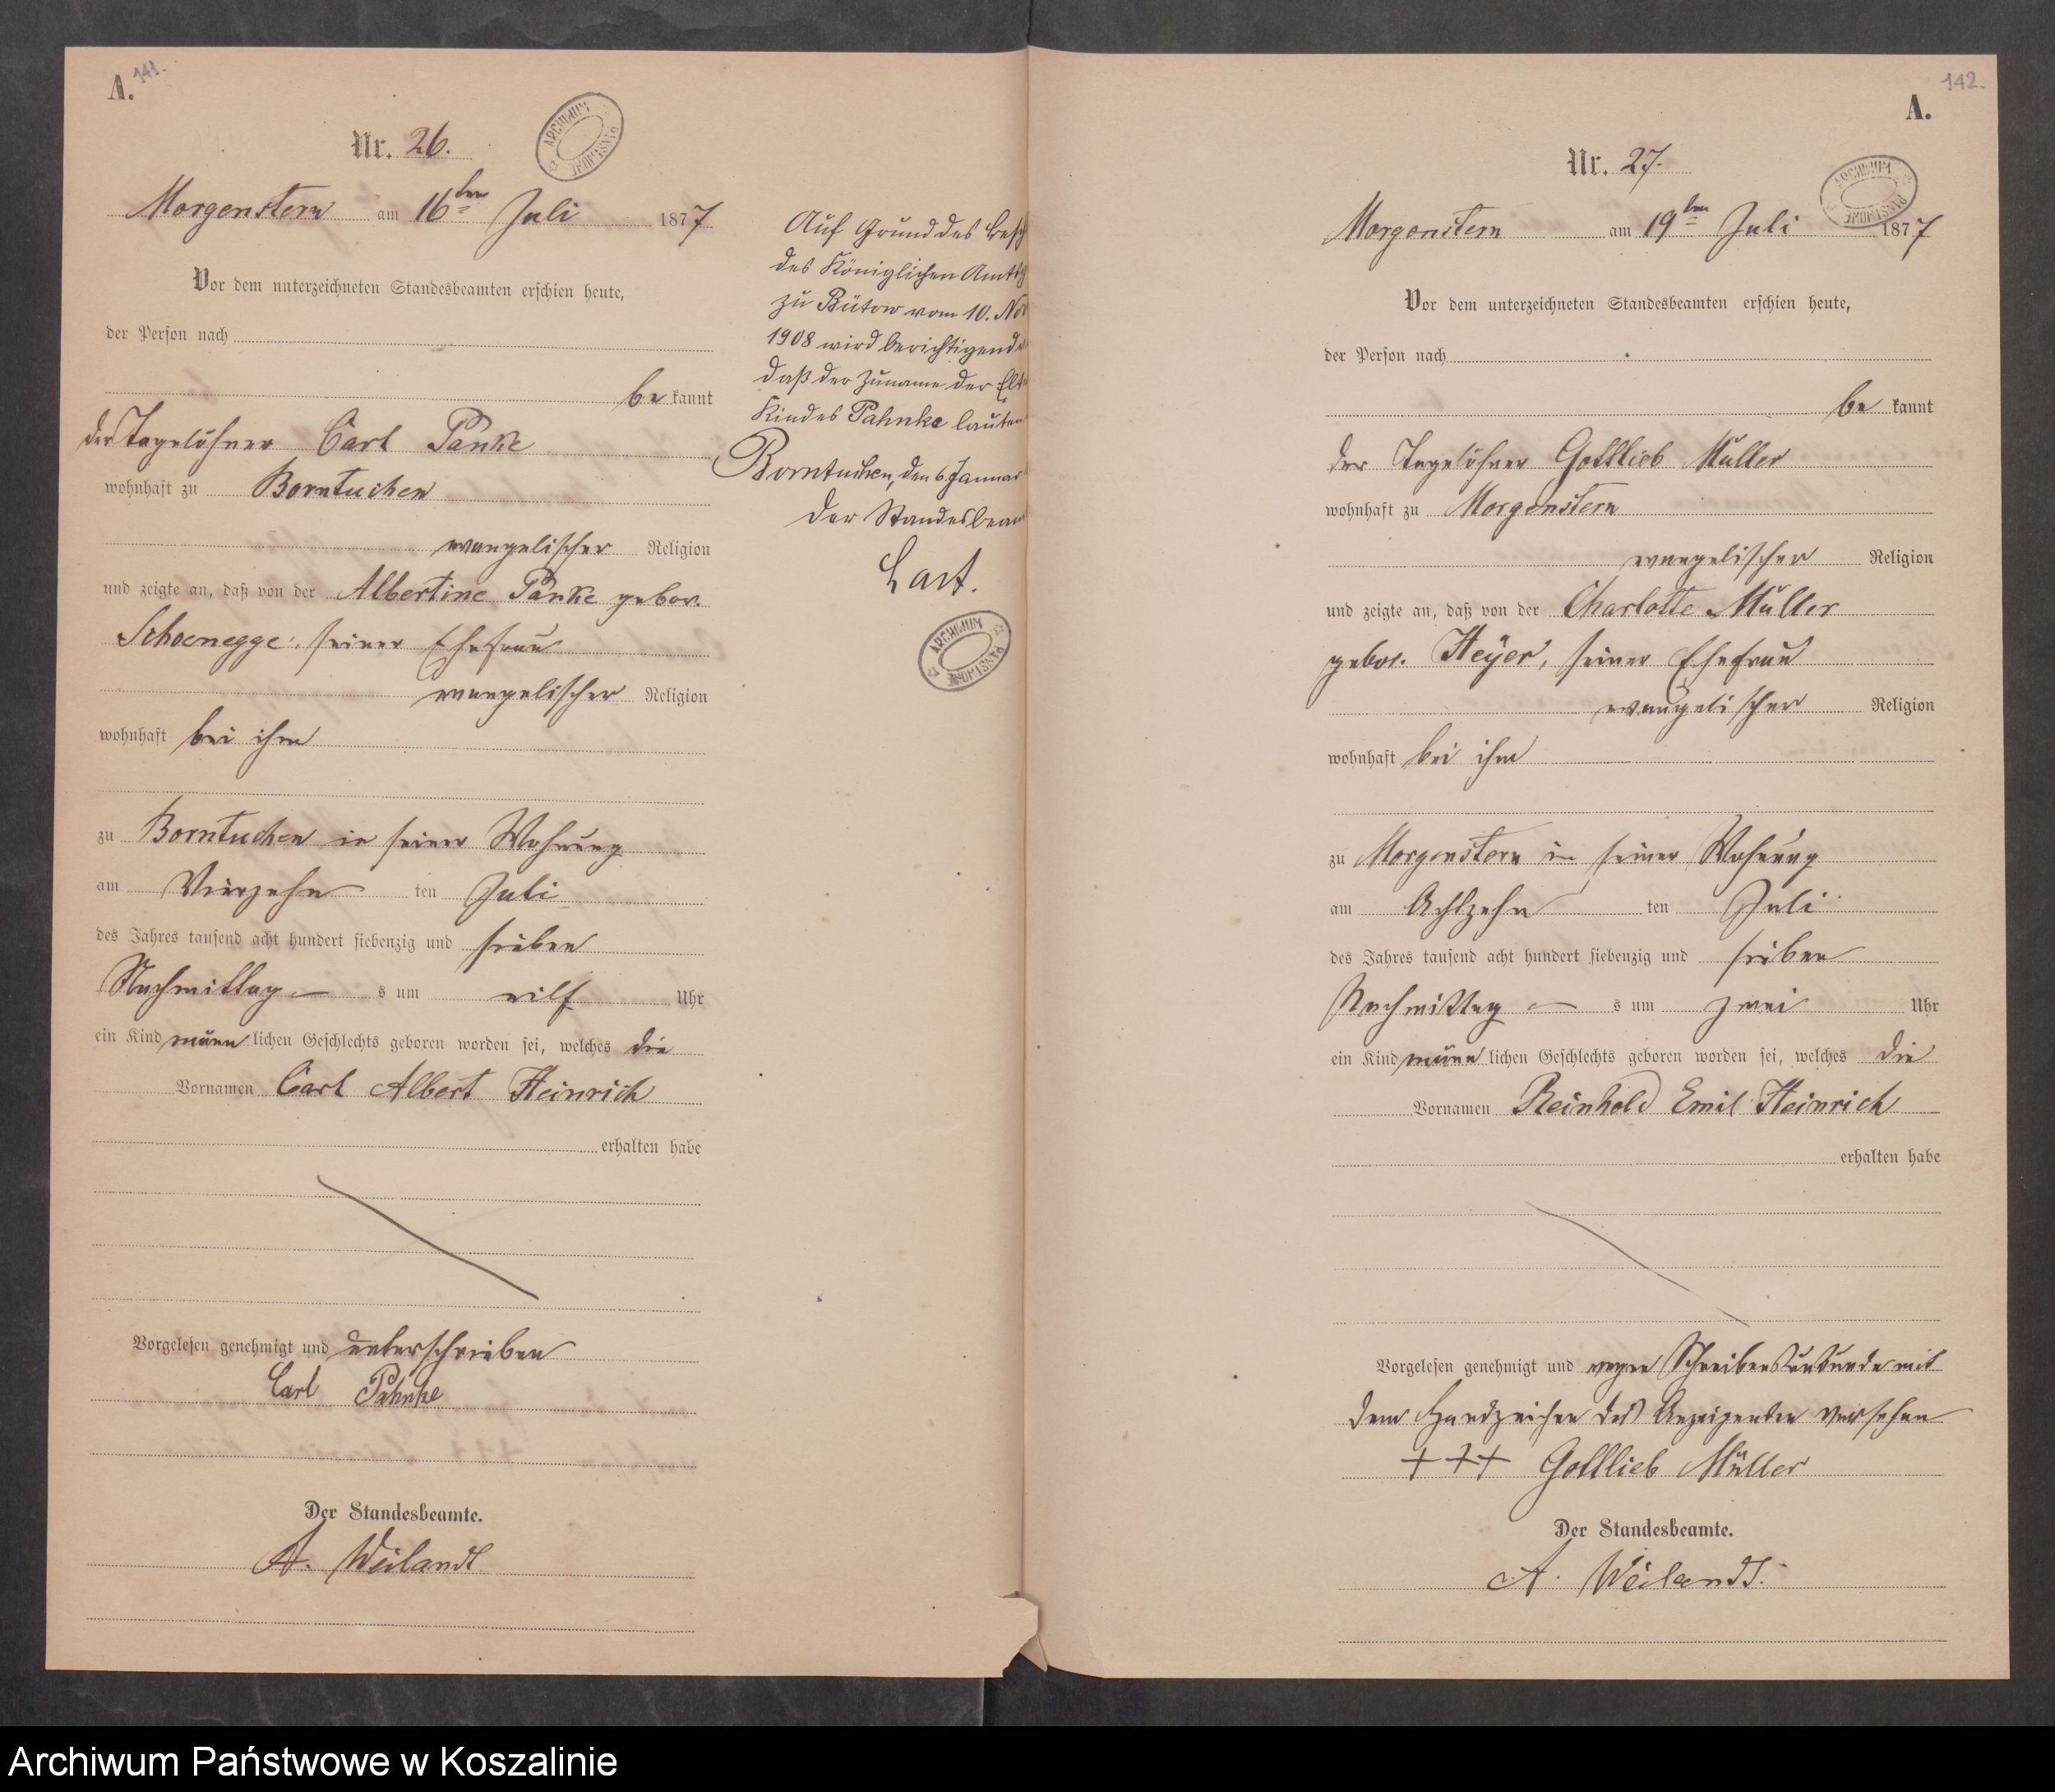 A.
141.
Nr. 26.
Morgenstern am 16ten Juli 1877
Vor dem unterzeichneten Standesbeamten erschien heute,
der Person nach
be kannt
der Tagelöhner Carl Panke
wohnhaft zu Borntuchen
evangelischer Religion
und zeigte an, daß von der Albertine Panke gebor.
Schoenegge: seiner Ehefrau
evangelischer Religion
wohnhaft bei ihm
zu Borntuchen in seiner Wohnung
am Vierzehn ten Juli
des Jahres tausend acht hundert siebenzig und sieben
Nachmittag s um eilf Uhr
ein Kind männ lichen Geschlechts geboren worden sei, welches die
Vornamen Carl Albert Heinrich
erhalten habe
Vorgelesen genehmigt und unterschrieben
Carl Pahnke
Der Standesbeamte.
A. Weilandt
ARCHIWUM PAŃSTWOWE
Auf Grund des Besch
des Königlichen Amtsg
zu Bütow vom 10. Nov
1908 wird berichtigend
daß der Zuname der Elt
Kindes Pahnke lauten
Borntuchen, den 6. Januar
Der Standesbeam
ARCHIWUM PAŃSTWOWE
142.
A.
Nr. 27.
ARCHIWUM PAŃSTWOWE
Morgenstern am 19ten Juli 1877
Vor dem unterzeichneten Standesbeamten erschien heute,
der Person nach
be kannt
der Tagelöhner Gottlieb Müller
wohnhaft zu Morgenstern
evangelischer Religion
und zeigte an, daß von der Charlotte Müller
gebor. Heyer, seiner Ehefrau
evangelischer Religion
wohnhaft bei ihm
zu Morgenstern in seiner Wohnung
am Achtzehn ten Juli
des Jahres tausend acht hundert siebenzig und sieben
Nachmittag s um zwei Uhr
ein Kind männ lichen Geschlechts geboren worden sei, welches die
Vornamen Reinhold Emil Heinrich
erhalten habe
Vorgelesen genehmigt und wegen Schreibensunkunde mit
dem Handzeichen des Anzeigenden versehen
+++ Gottlieb Müller
Der Standesbeamte.
A. Weilandt.
Archiwum Państwowe w Koszalinie